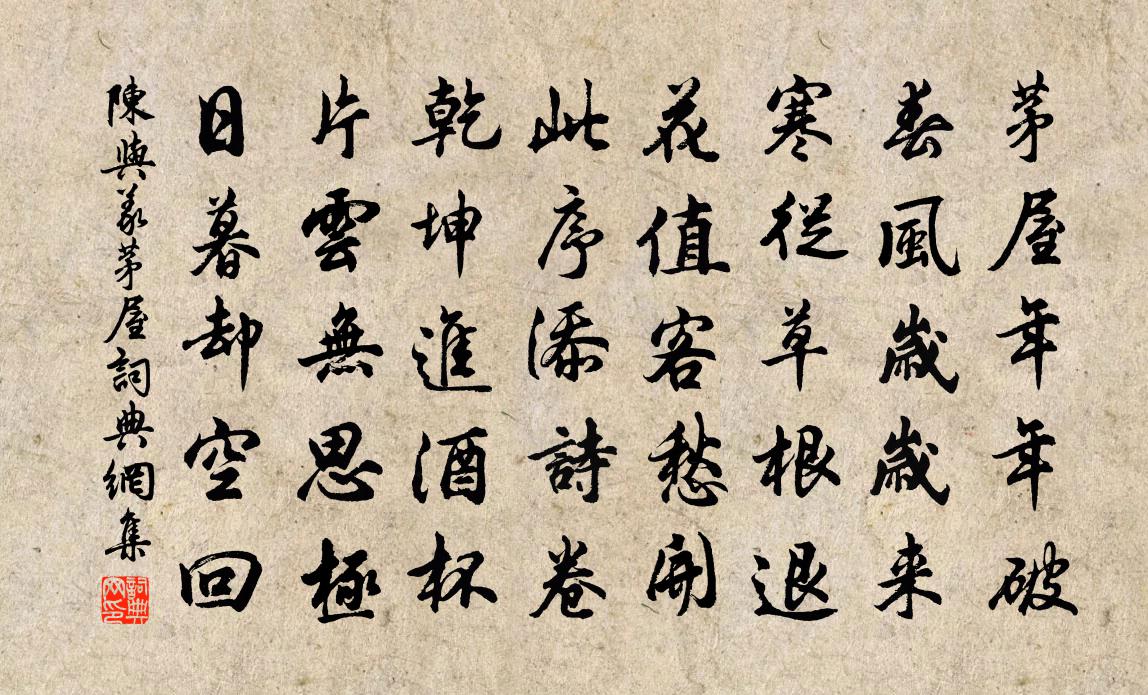 茅屋年年破
春風歲歲来
寒從草根退
花值客愁開
此序添詩卷
乾坤進酒杯
片雲無思極
日暮却空回
陳與義茅屋詞典網集
詞典网印